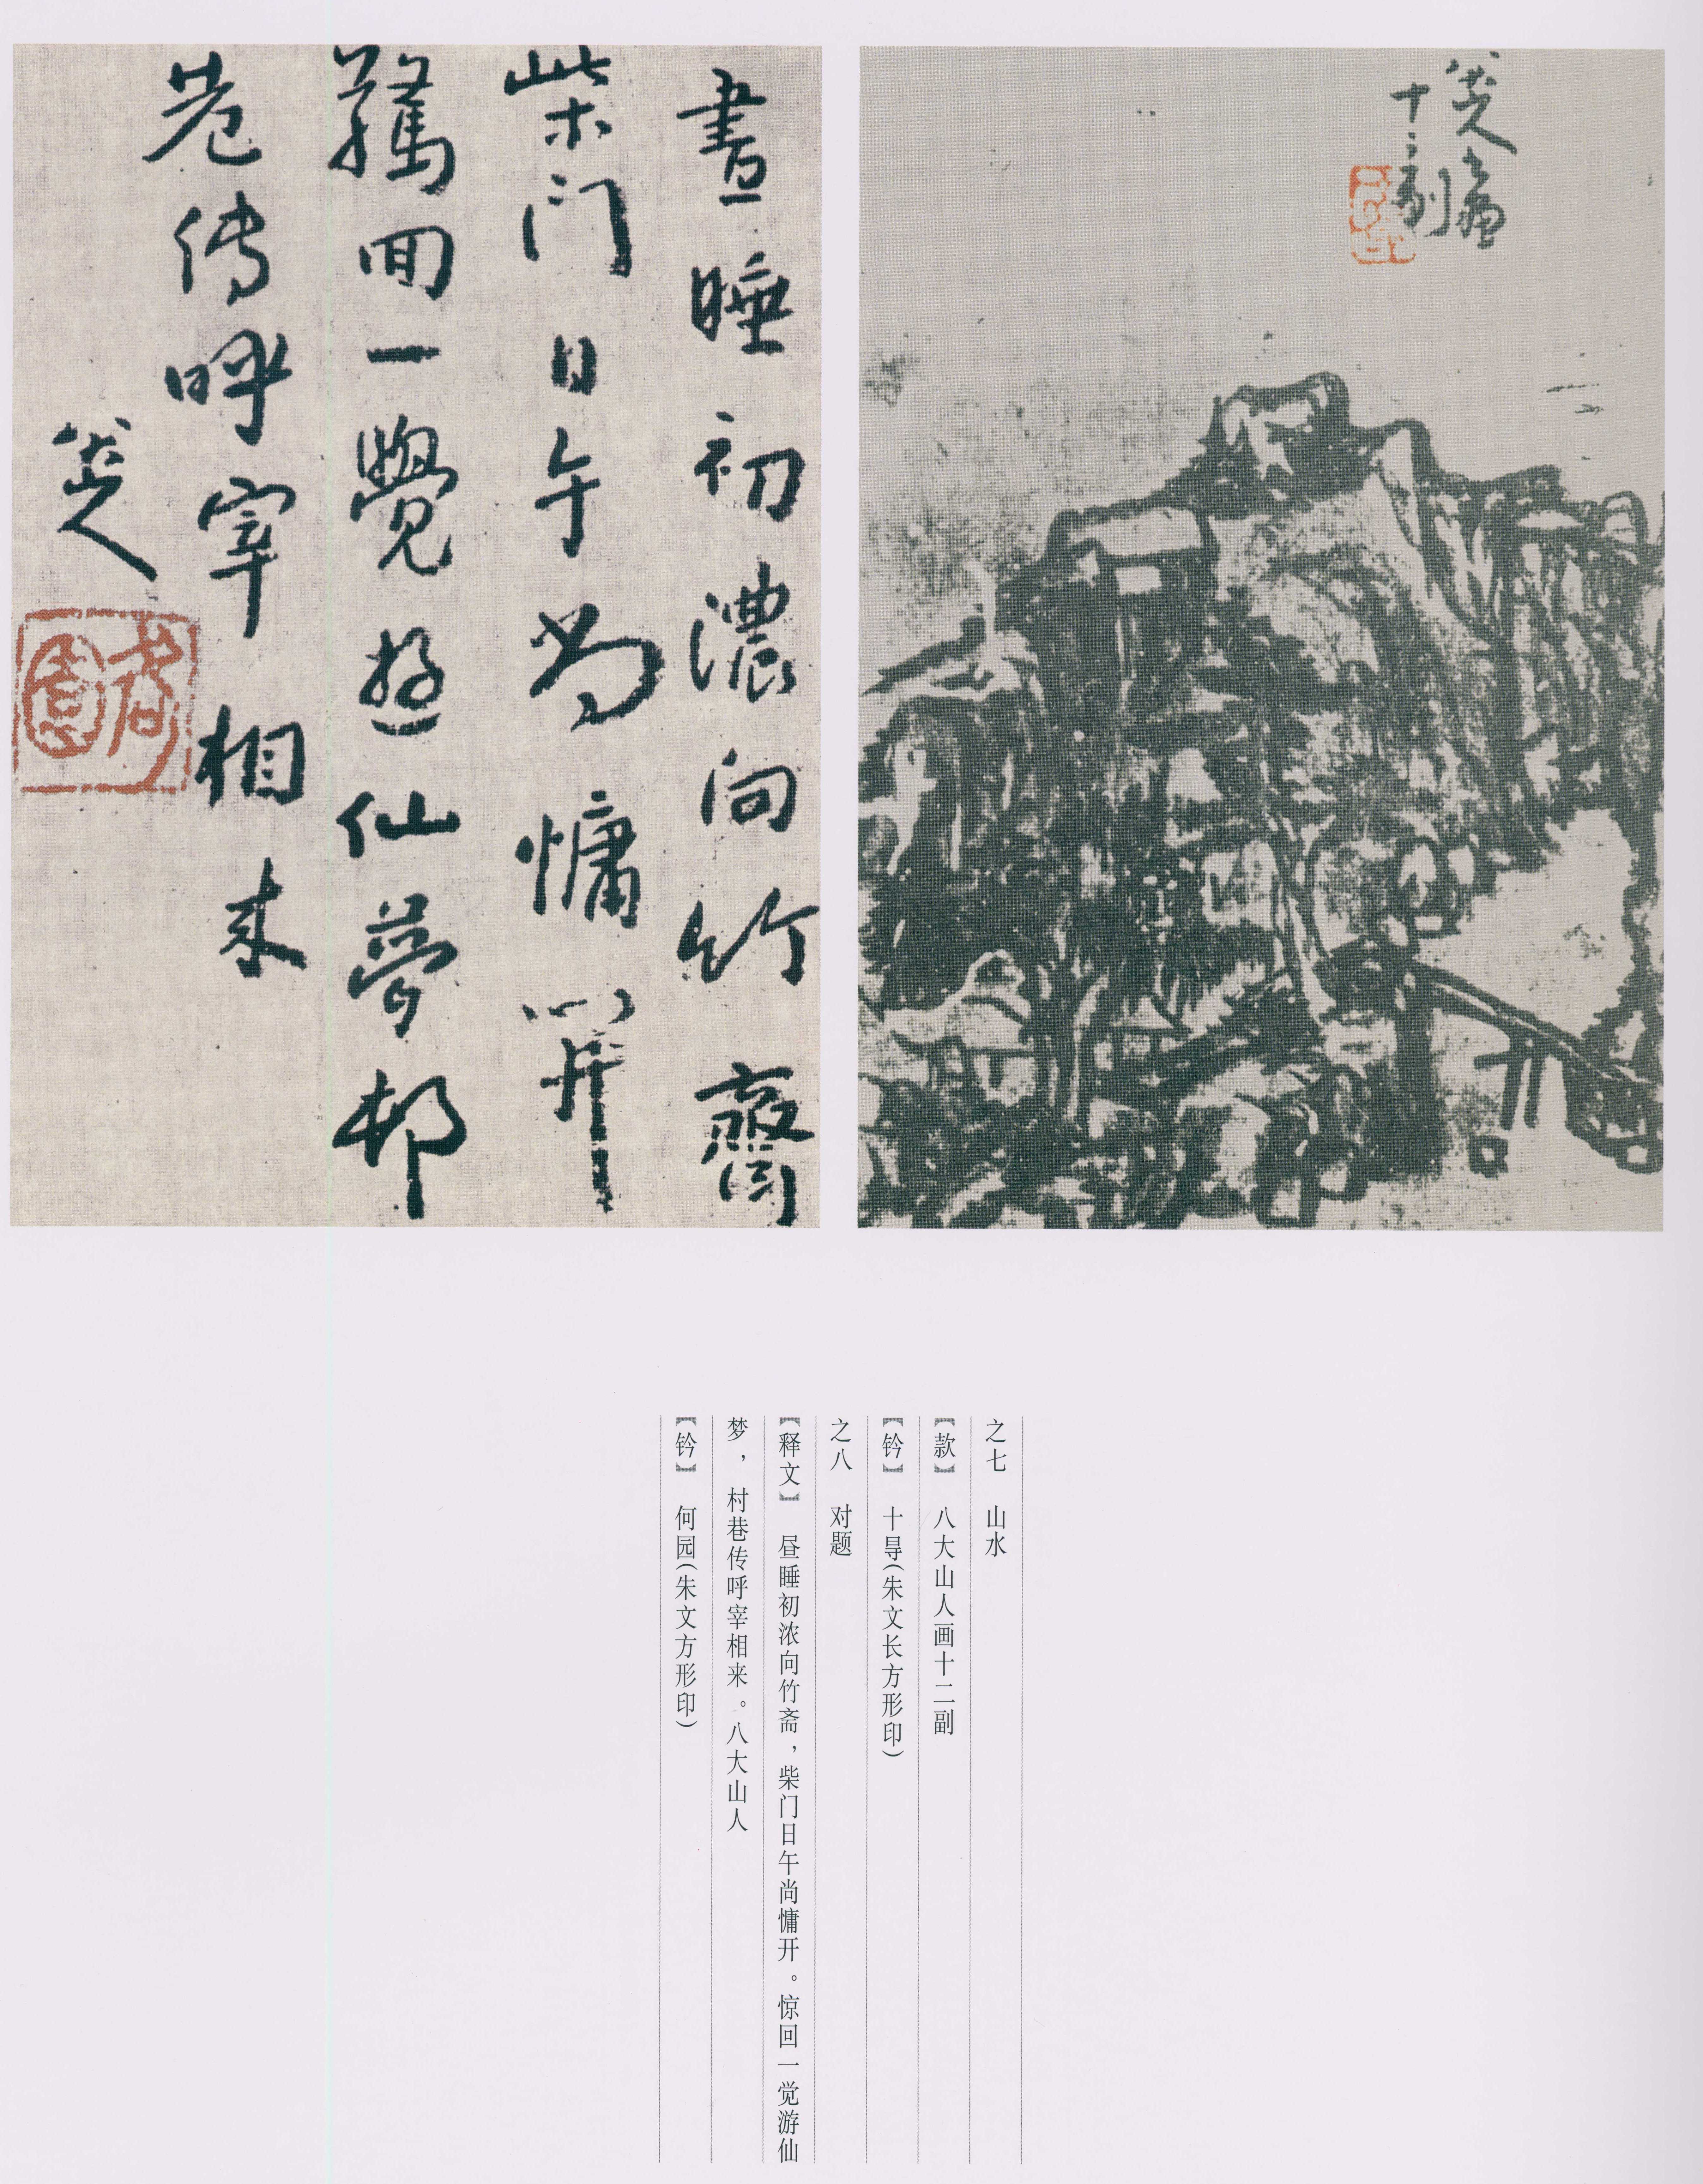 八大山人画
十二副
晝睡初濃向竹齋
柴门日午尚慵開
驚回一覺遊仙夢邨
巷传呼宰相来
八大山人
何園
之七 山水
【款】 八大山人画十二副
【钤】 十㝵(朱文长方形印)
之八 对题
【释文】 昼睡初浓向竹斋，柴门日午尚慵开。惊回一觉游仙
梦，村巷传呼宰相来。八大山人
【钤】 何园(朱文方形印)